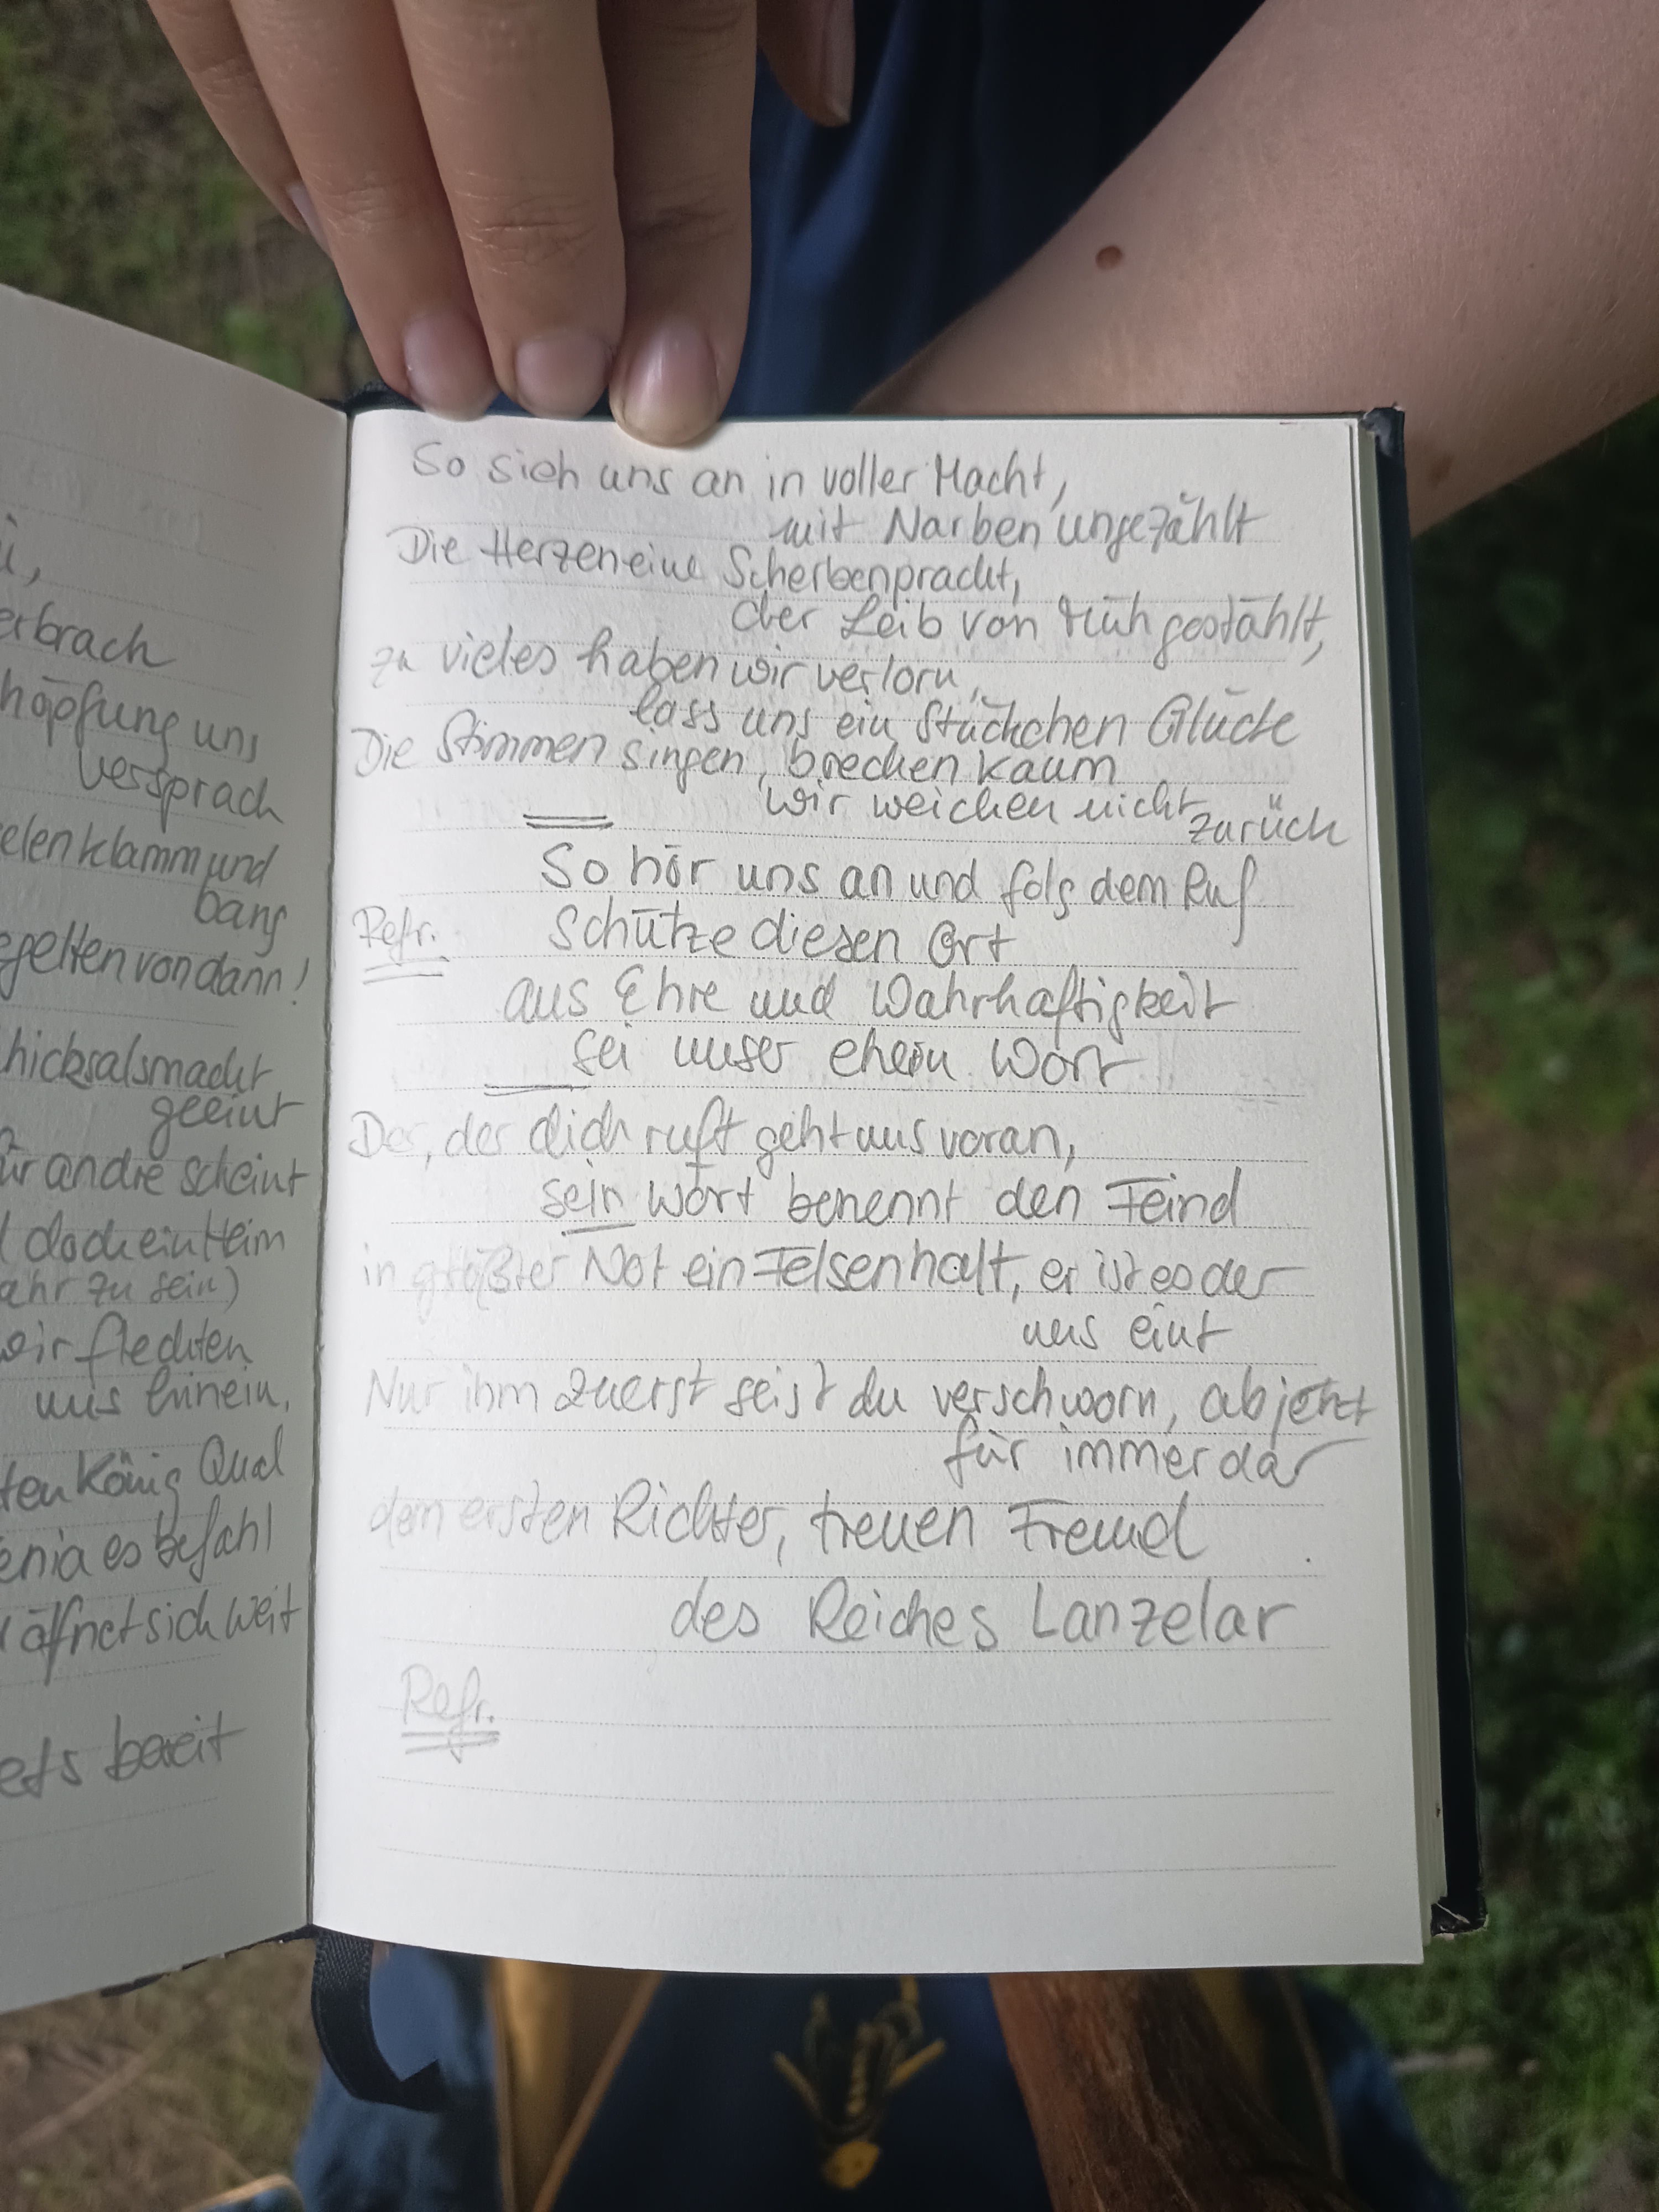 erbrach
höpfung uns
versprach
elen klamm und
bang
gelten von dann!
hicksalsmacht
geeint
ür andre scheint
doch ein Heim
ahr zu sein)
wir flechten
uns hinein,
ten König Qual
enia es befahl
öffnet sich weit
ets bereit
So sieh uns an in voller Macht,
mit Narben ungezählt
Die Herzen eine Scherbenpracht,
der Leib von Müh gestählt,
zu vieles haben wir verlorn,
lass uns ein Stückchen Glück
Die Stimmen singen, brechen kaum
wir weichen nicht
zurück
So hör uns an und folg dem Ruf
Refr.
Schütze diesen Ort
aus Ehre und Wahrhaftigkeit
sei unser ehern Wort
Der, der dich ruft geht uns voran,
sein Wort benennt den Feind
in größter Not ein Felsenhalt, er ist es der
uns eint
Nur ihm zuerst seist du verschworn, ab jetzt
für immerdar
dem ersten Richter, treuen Freund
des Reiches Lanzelar
Refr.